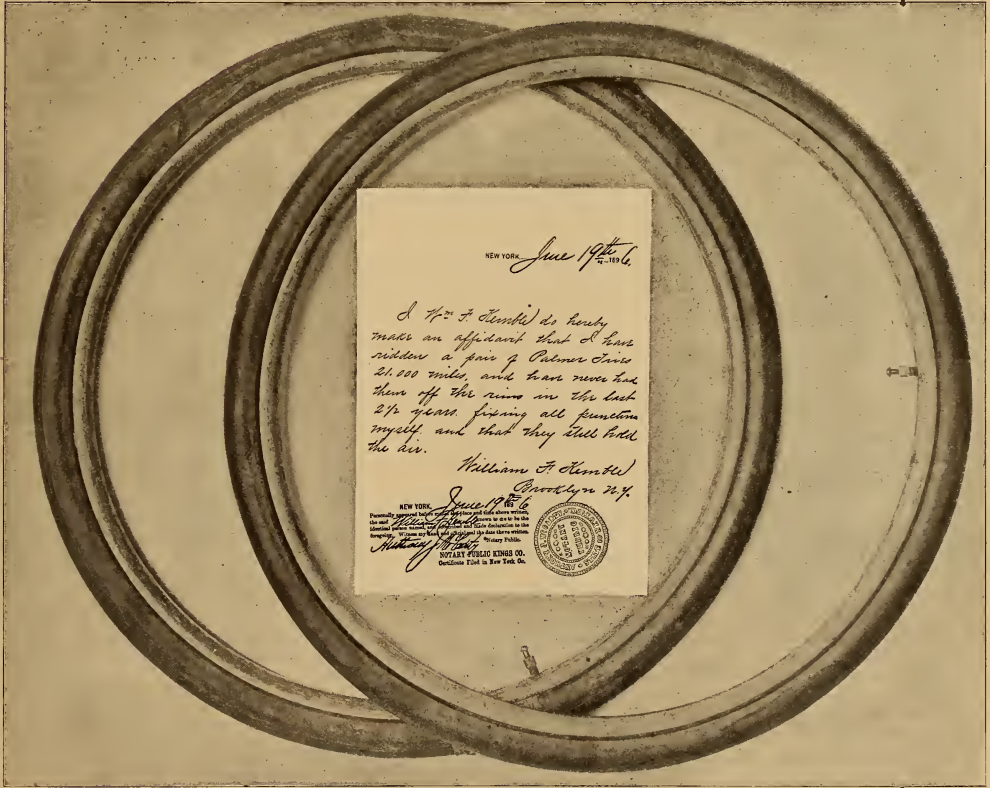 NEW YORK, June 19th 1896.
I Wm F. Kemble do hereby
make an affidavit that I have
ridden a pair of Palmer Tires
21.000 miles, and have never had
them off the rims in the last
2 1/2 years. fixing all punctures
myself, and that they still hold
the air.
William F. Kemble
Brooklyn N.Y.
NEW YORK, June 19th 1896
Personally appeared before me at the place and time above written,
the said William F. Kemble known to me to be the
identical person named, and described and made declaration to the
foregoing. Witness my hand and official seal the date above written.
Notary Public.
NOTARY PUBLIC KINGS CO.
Certificate Filed in New York Co.